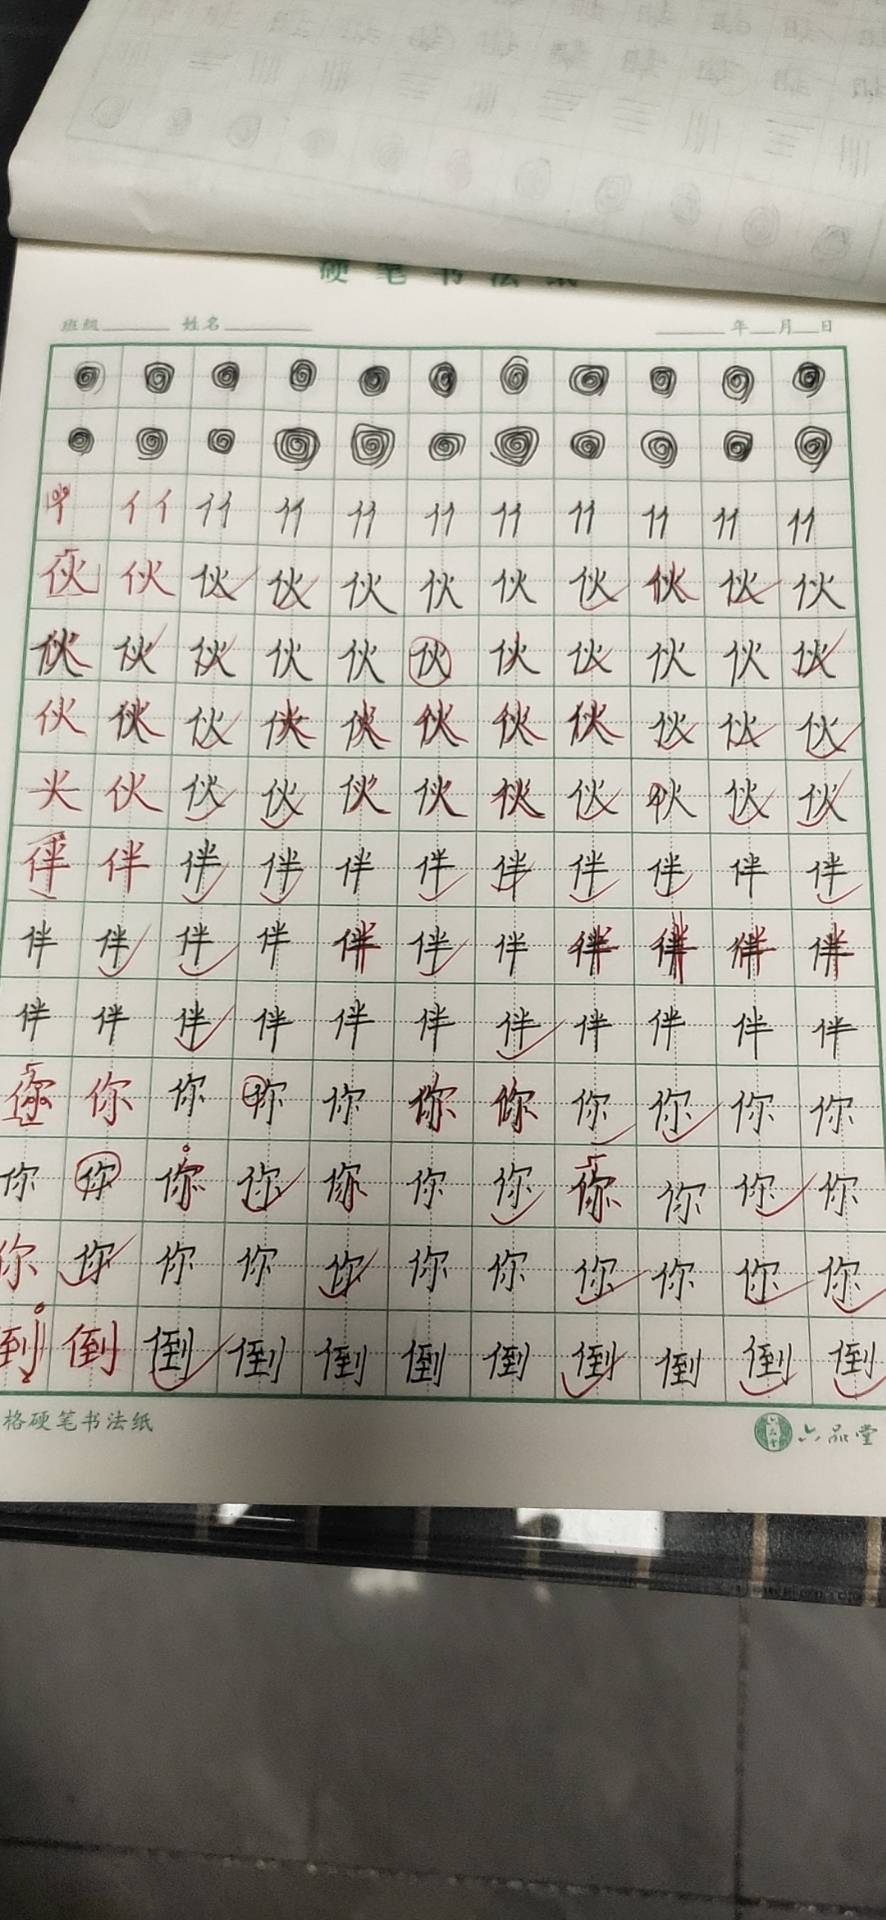 硬笔书法纸
班级 姓名 年 月 日
亻 亻亻 亻亻 亻亻 亻亻 亻亻 亻亻 亻亻 亻亻 亻亻 亻亻
伙 伙 伙 伙 伙 伙 伙 伙 伙 伙 伙
伙 伙 伙 伙 伙 伙 伙 伙 伙 伙 伙
伙 伙 伙 伙 伙 伙 伙 伙 伙 伙 伙
火 伙 伙 伙 伙 伙 伙 伙 伙 伙 伙
伴 伴 伴 伴 伴 伴 伴 伴 伴 伴 伴
伴 伴 伴 伴 伴 伴 伴 伴 伴 伴 伴
伴 伴 伴 伴 伴 伴 伴 伴 伴 伴 伴
你 你 你 你 你 你 你 你 你 你 你
你 你 你 你 你 你 你 你 你 你 你
你 你 你 你 你 你 你 你 你 你 你
倒 倒 倒 倒 倒 倒 倒 倒 倒 倒 倒
格硬笔书法纸 六品堂